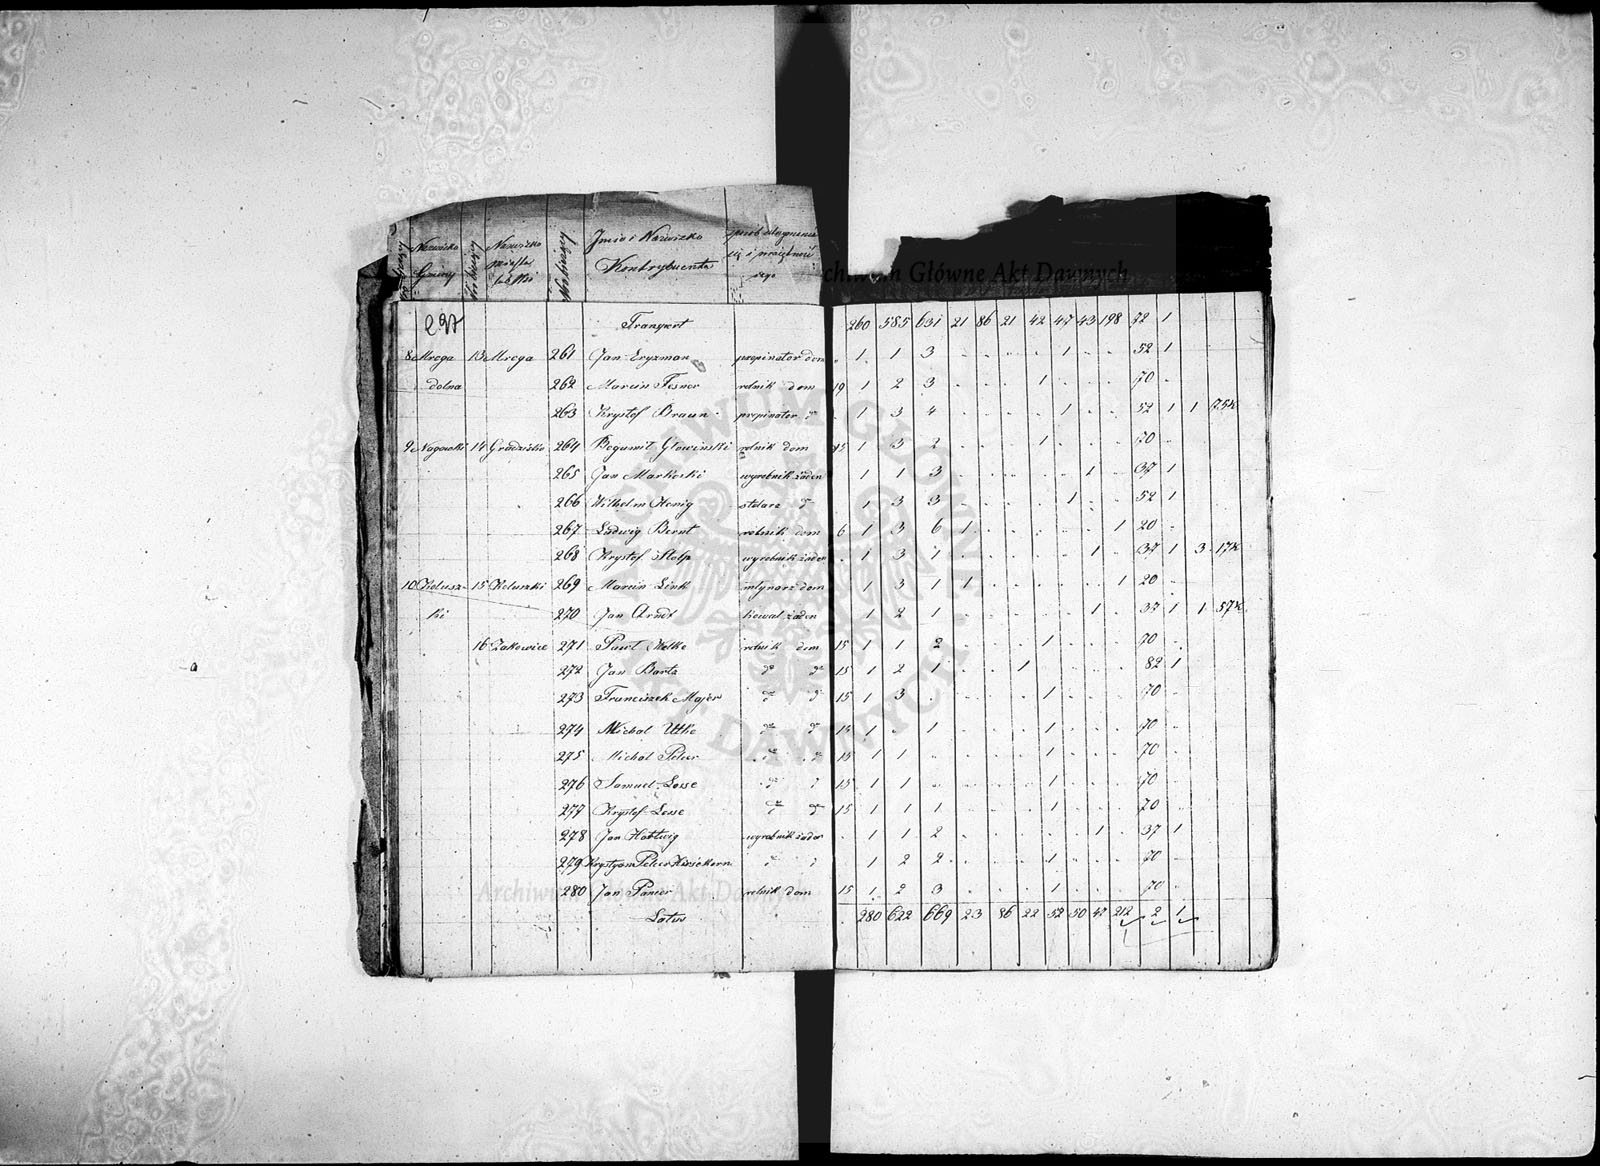 Nazwisko Gminy Nazwisko miasta lub Wsi Imie i Nazwisko Kontrybuenta
Archiwum Główne Akt Dawnych
297 Transport 260 585 631 21 86 21 42 47 43 198 72 1
8 Mroga 13 Mroga 261 Jan Eryzman propinator dom . 1 1 3 . . . . 1 . . 52 1
dolna 262 Marcin Fesner rolnik dom 19 1 2 3 . . . 1 . . . 70 .
263 Krystof Braun propinator d . 1 3 4 . . . . 1 . . 52 1 1
9 Nagowski 14 Gradzisko 264 Bogumił Głowinski rolnik dom 15 1 3 2 . . . 1 . . . 70 .
265 Jan Markoski wyrobnik żaden . 1 1 3 . . . . . 1 . 37 1
266 Wilhelm Henig stolarz d . 1 3 3 . . . . 1 . . 52 1
267 Ludwig Bernt rolnik dom 6 1 3 6 1 . . . . . 1 20 .
268 Krystof Stolp wyrobnik żaden . 1 3 1 . . . . . 1 . 37 1 3
10 Kolusz- 15 Koluszki 269 Marcin Link młynarz dom . 1 3 1 1 . . . . . 1 20 .
ki 270 Jan Arndt kowal żaden . 1 2 1 . . . . . 1 . 37 1 1
16 Zakowice 271 Pawł Melke rolnik dom 15 1 1 2 . . . 1 . . . 70 .
272 Jan Bartz d d 15 1 2 1 . . 1 . . . . 82 1
273 Franciszek Majer d d 15 1 3 . . . . 1 . . . 70 .
274 Michal Utke d d 15 1 . 1 . . . 1 . . . 70 .
275 Michal Peter d d 15 1 1 . . . . 1 . . . 70 .
276 Samuel Lesse d d 15 1 1 . . . . 1 . . . 70 .
277 Krystof Lesse d d 15 1 1 1 . . . 1 . . . 70 .
278 Jan Hartwig wyrobnik żaden . 1 1 2 . . . . . 1 . 37 1
279 Krystyan Peter Hirsekorn d d 1 2 2 . . . 1 . . . 70 .
280 Jan Panier rolnik dom 15 1 2 3 . . . 1 . . . 70 .
Latus . 280 622 669 23 86 22 52 50 47 212 2 1
ARCHIWUM GŁÓWNE AKT DAWNYCH
Archiwum Główne Akt Dawnych